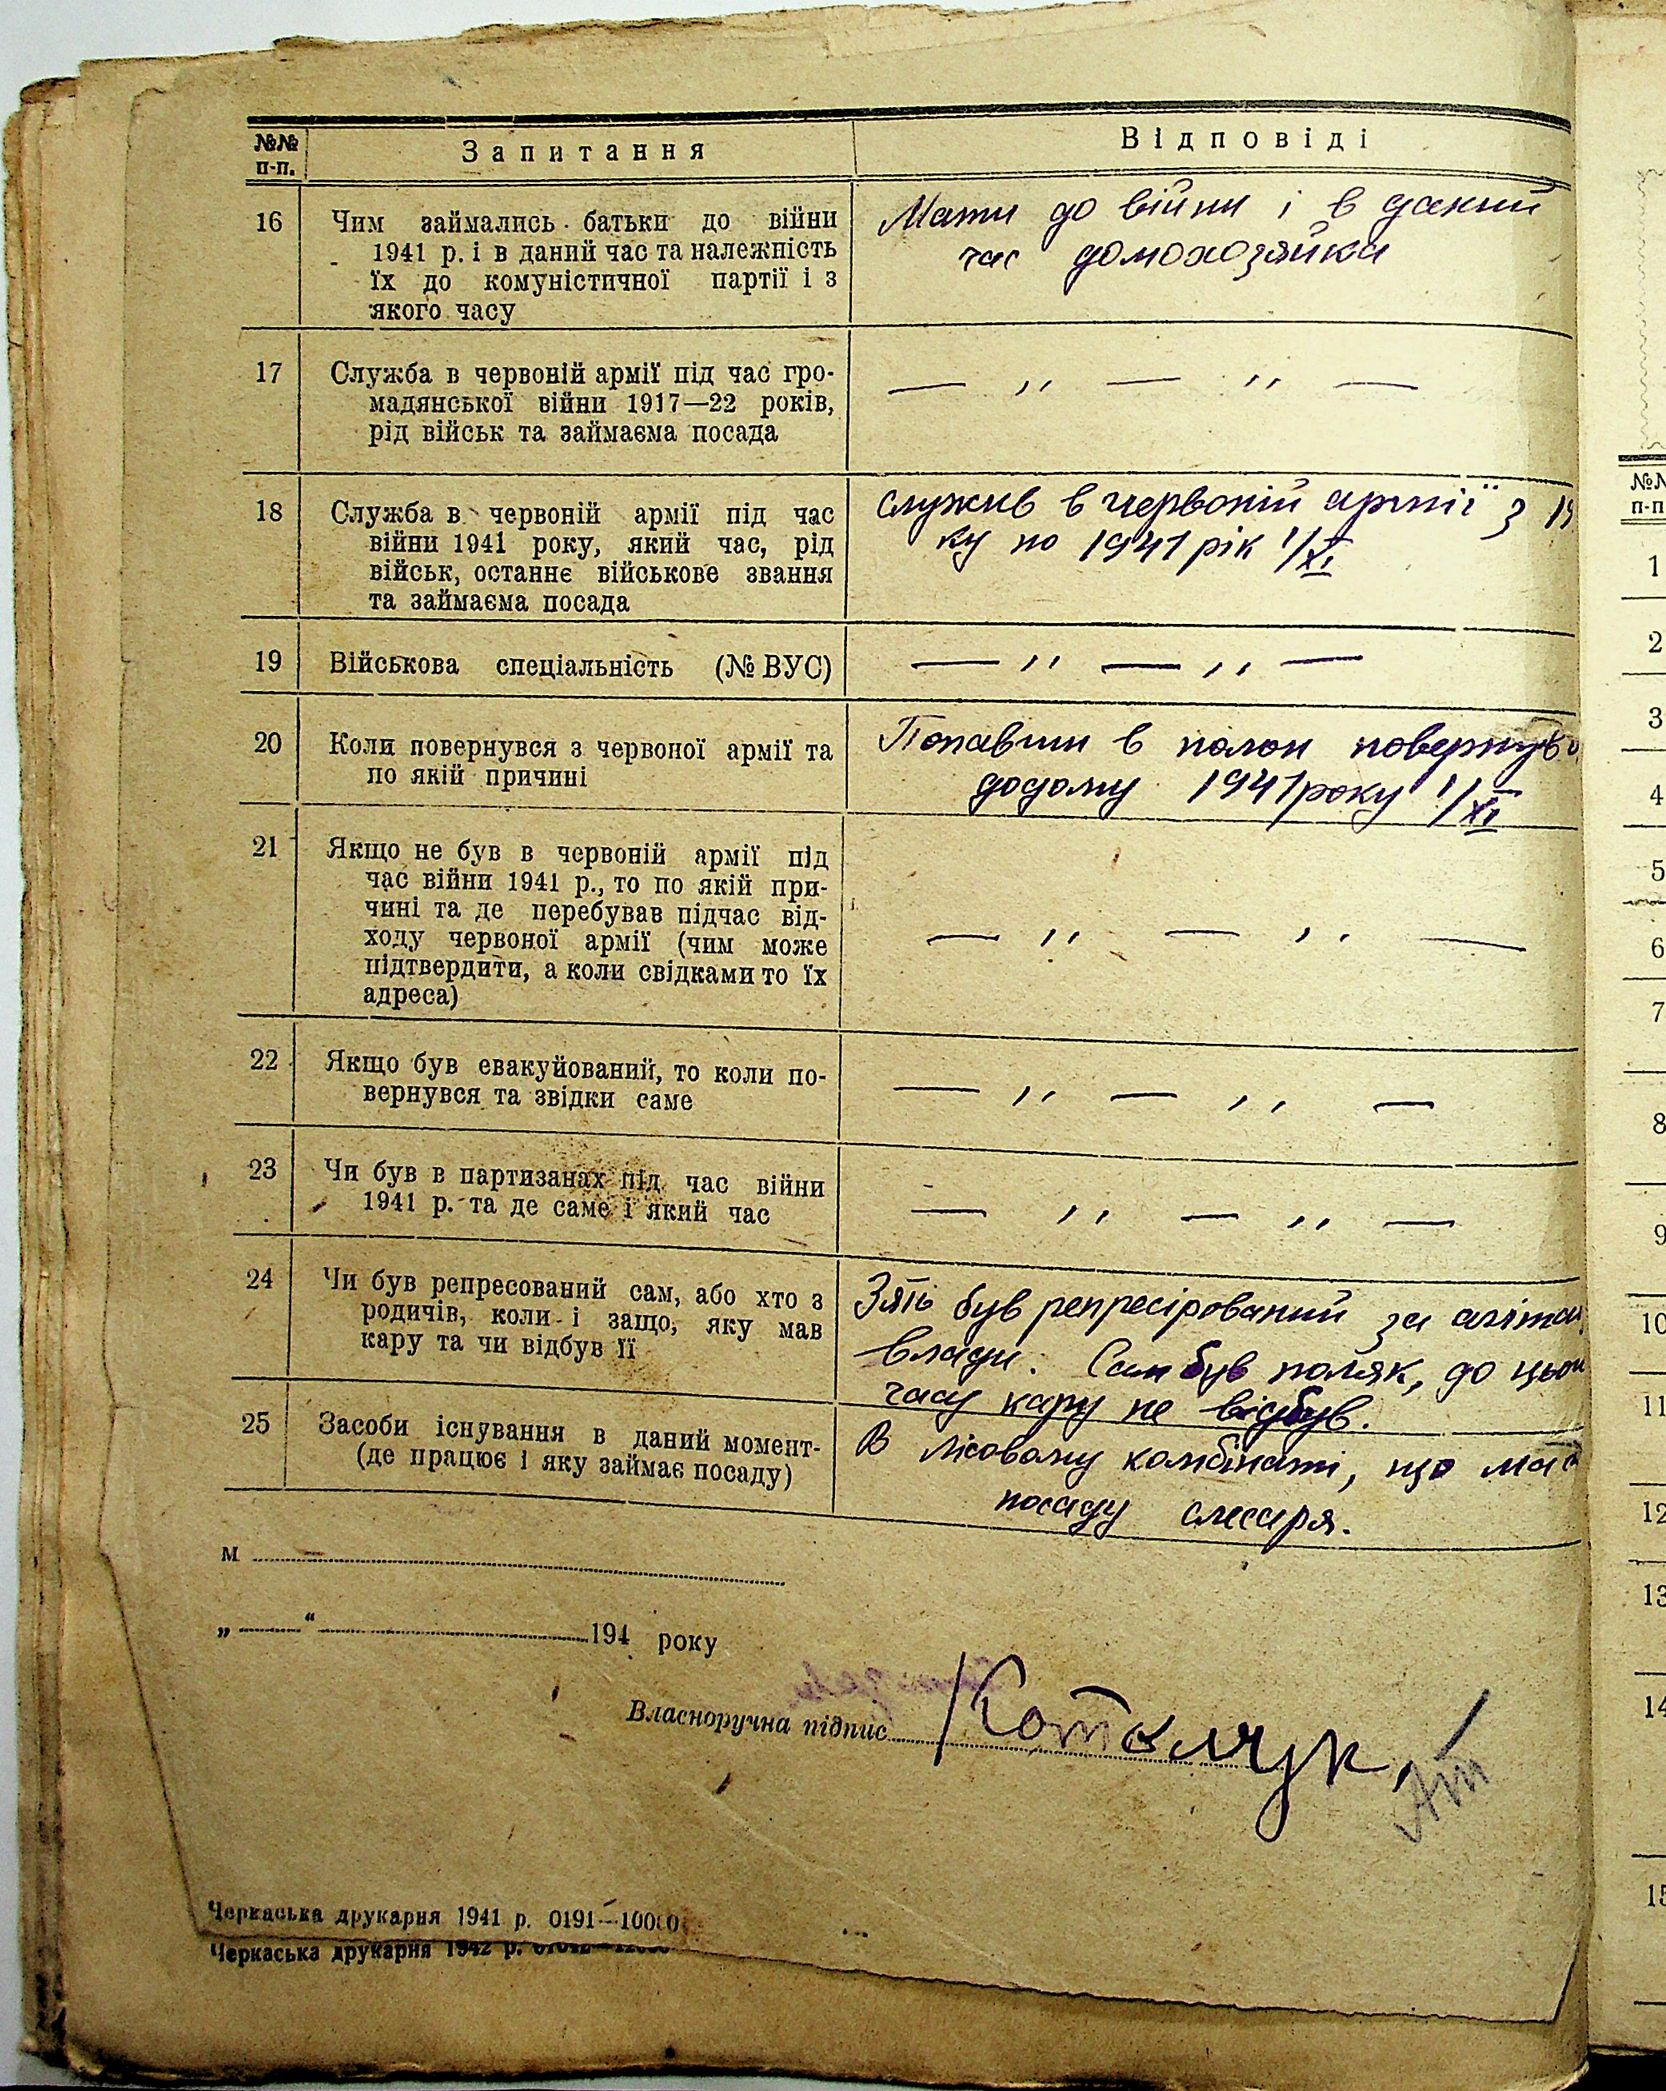 №№ п-п. Запитання Відповіді
16 Чим займались батьки до війни
1941 р. і в даний час та належність
їх до комуністичної партії і з
якого часу
Мати до війни і в даний
час домохозяйка
17 Служба в червоній армії під час гро-
мадянської війни 1917—22 років,
рід військ та займаєма посада
— ,, — ,, —
18 Служба в червоній армії під час
війни 1941 року, який час, рід
військ, останнє військове звання
та займаєма посада
служив в червоній армії з 19
ку по 1941 рік 1/XI
19 Військова спеціальність (№ ВУС)
— ,, — ,, —
20 Коли повернувся з червоної армії та
по якій причині
Попавши в полон повернувс
додому 1941 року 1/XI
21 Якщо не був в червоній армії під
час війни 1941 р., то по якій при-
чині та де перебував підчас від-
ходу червоної армії (чим може
підтвердити, а коли свідками то їх
адреса)
— ,, — ,, —
22 Якщо був евакуйований, то коли по-
вернувся та звідки саме
— ,, — ,, —
23 Чи був в партизанах під час війни
1941 р. та де саме і який час
— ,, — ,, —
24 Чи був репресований сам, або хто з
родичів, коли і защо, яку мав
кару та чи відбув її
Зять був репресірований за агітац
влади. Сам був поляк, до цьог
часу кару не відбув.
25 Засоби існування в даний момент-
(де працює і яку займає посаду)
В лісовому комбінаті, що має
посаду слесаря.
м
„ “ 194 року
Власноручна підпис
Черкаська друкарня 1941 р. 0191—10000
Черкаська друкарня 1942 р.
№№
п-п
1
2
3
4
5
6
7
8
9
10
11
12
13
14
15